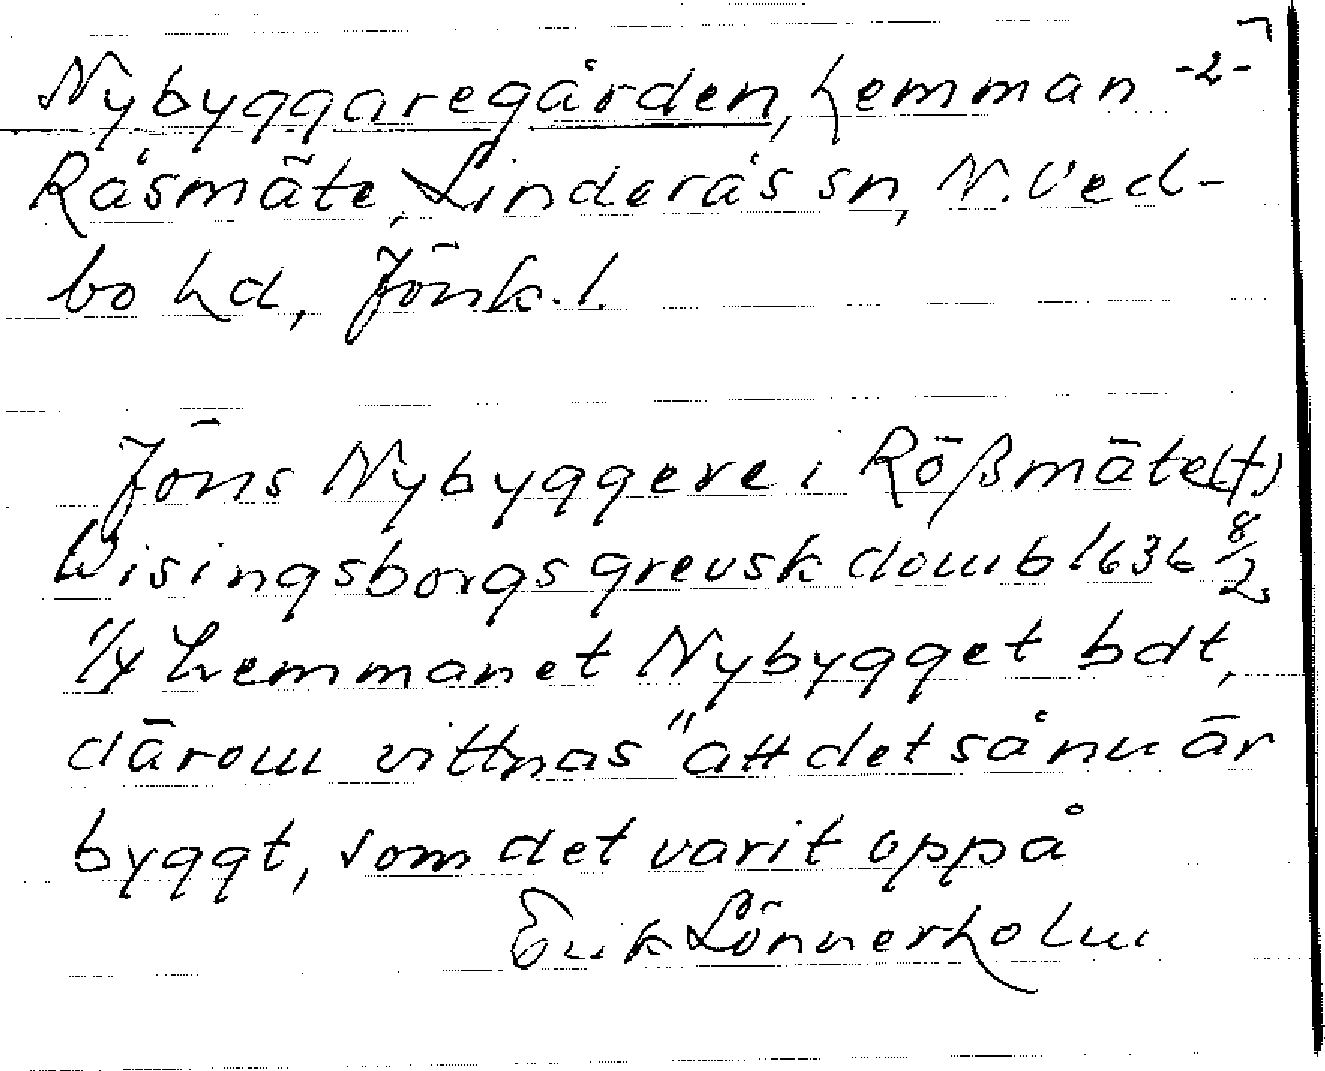 Nybyggaregården, hemman -2-
Råsmäte, Linderås sn, N. Ved-
bo hd, Jönk. l.
Jöns Nybyggere i Rößmäte(t)
Wisingsborgs grevsk domb 1636 8/2
1/4 hemmanet Nybygget bdt,
därom vittnas "att det så nu är
byggt, som det varit oppå
Erik Lönnerholm